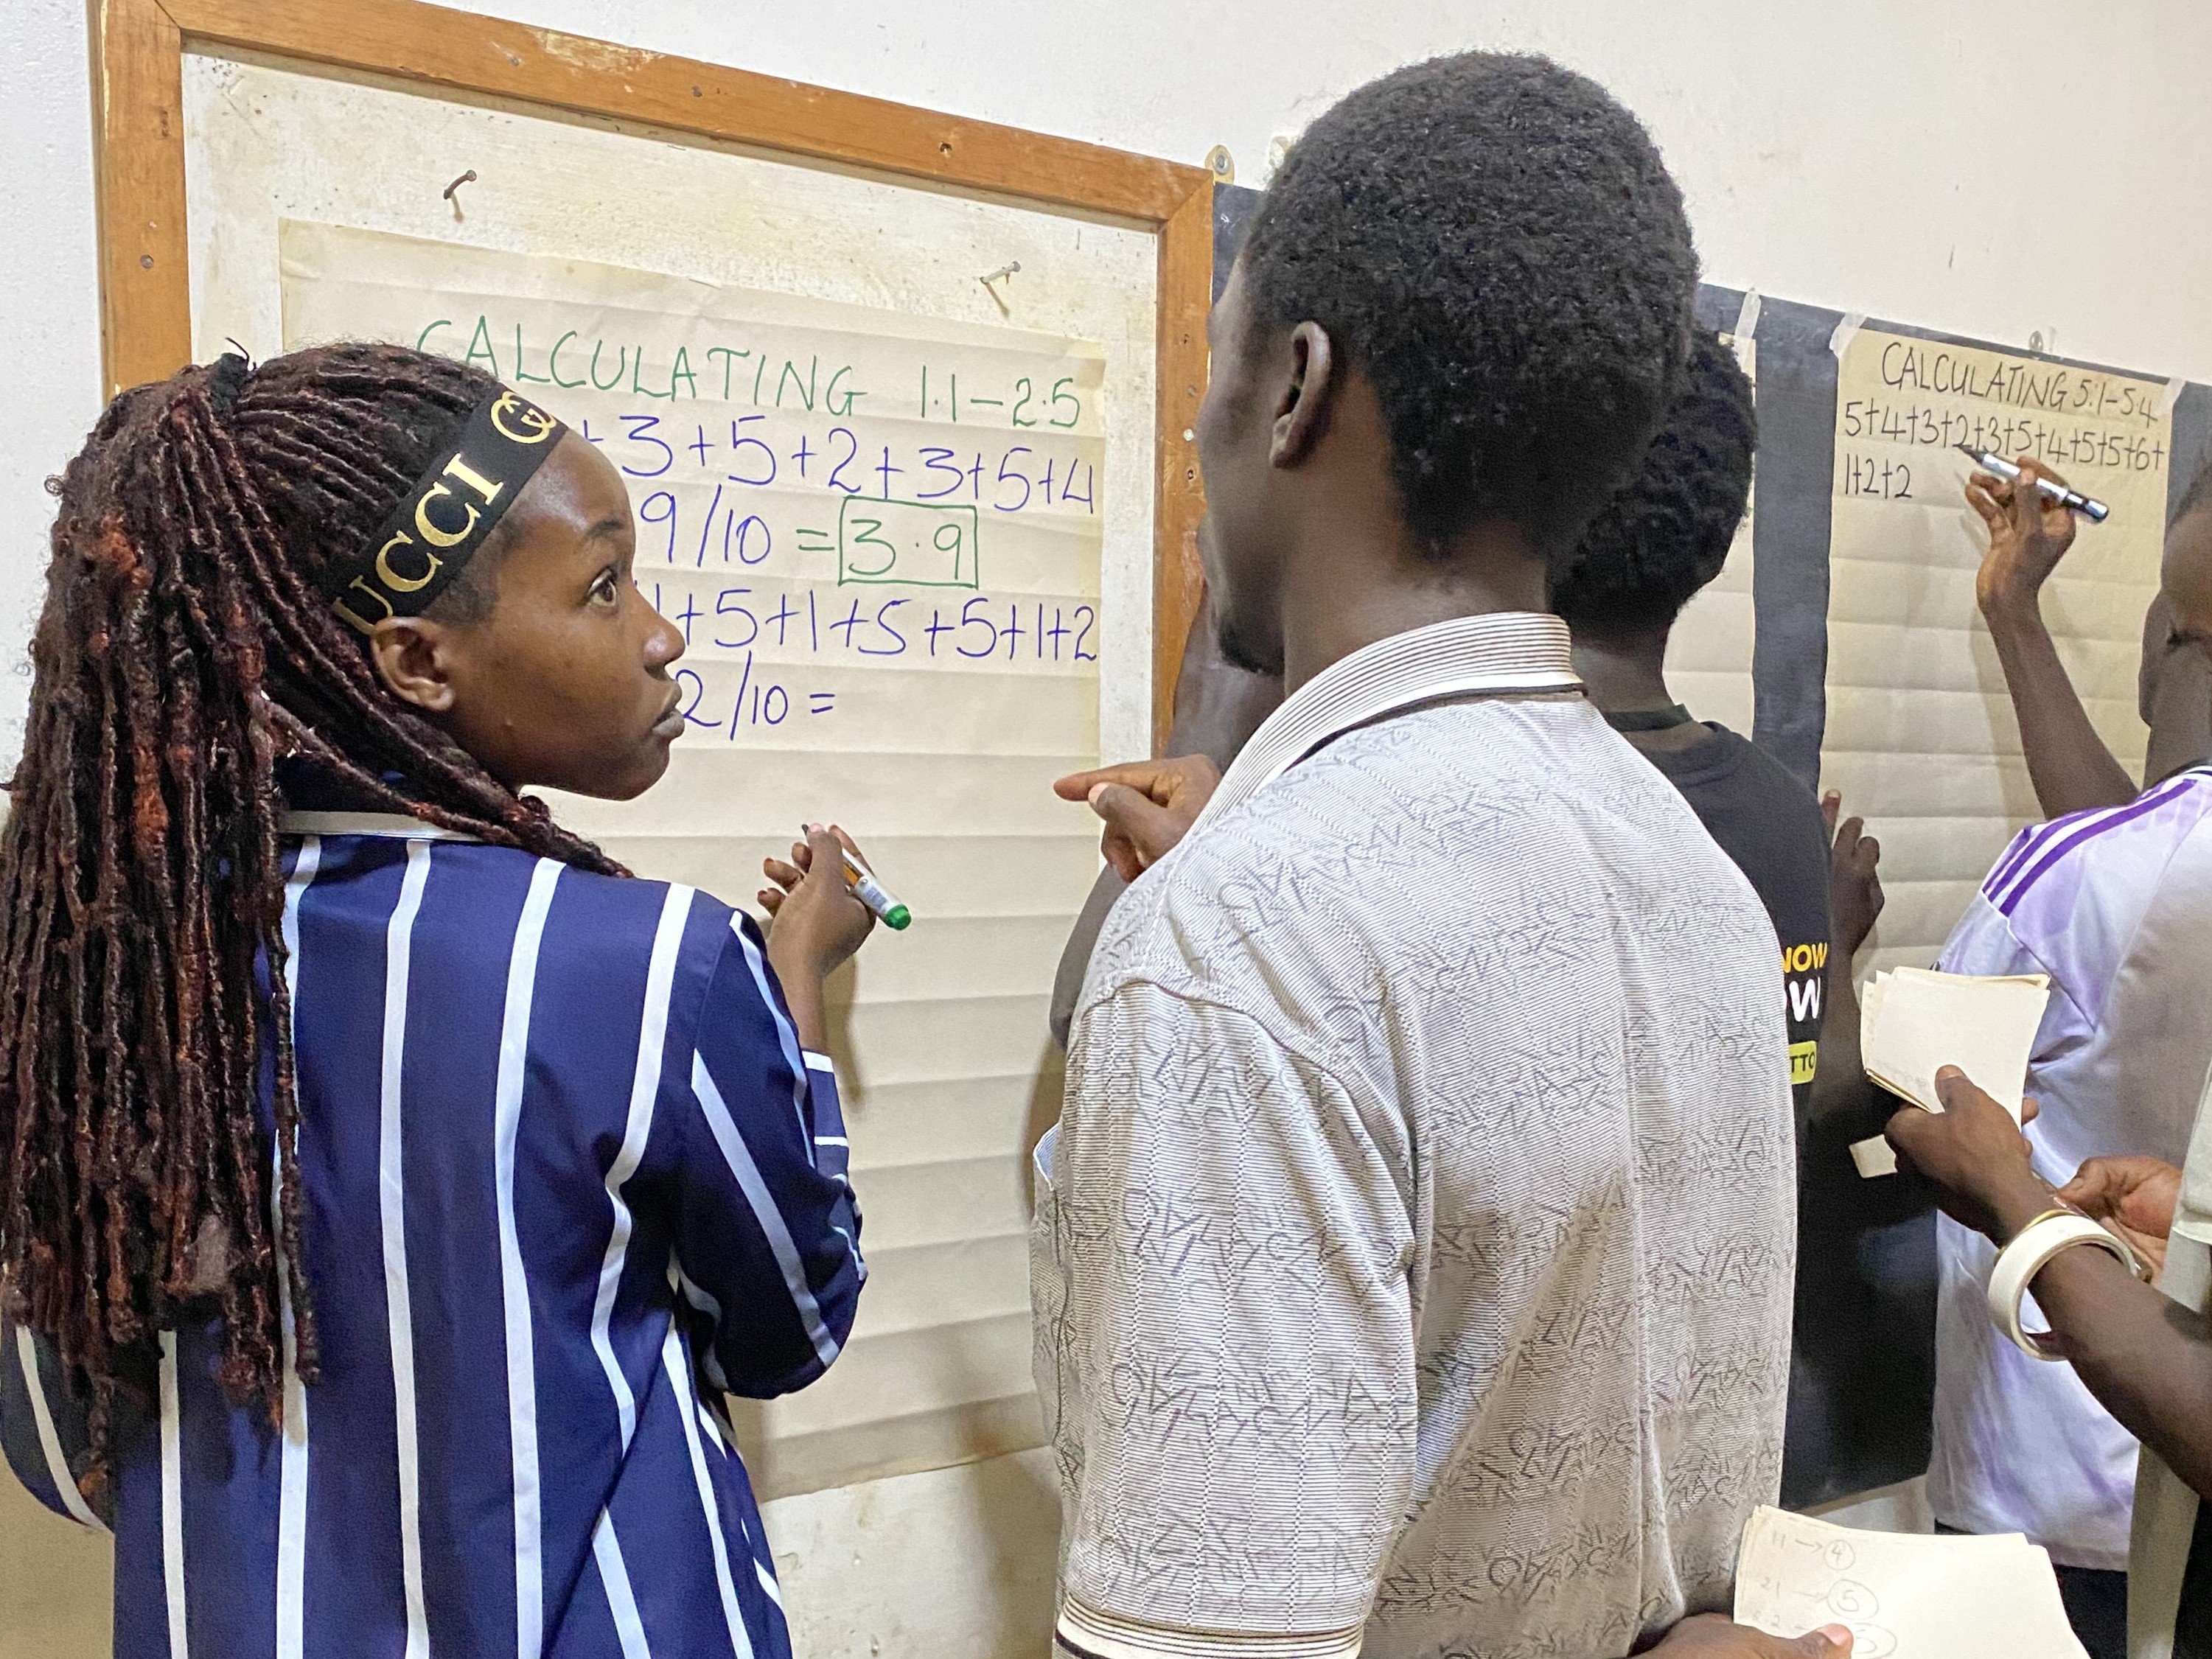 CALCULATING 1.1-2.5
+3+5+2+3+5+4
9/10 = 3.9
+5+1+5+5+1+2
2/10 =
UCCI
CALCULATING 5:1-5.4
5+4+3+2+3+5+4+5+5+6+
1+2+2
NOW
OW
TTO
11→4
21→5